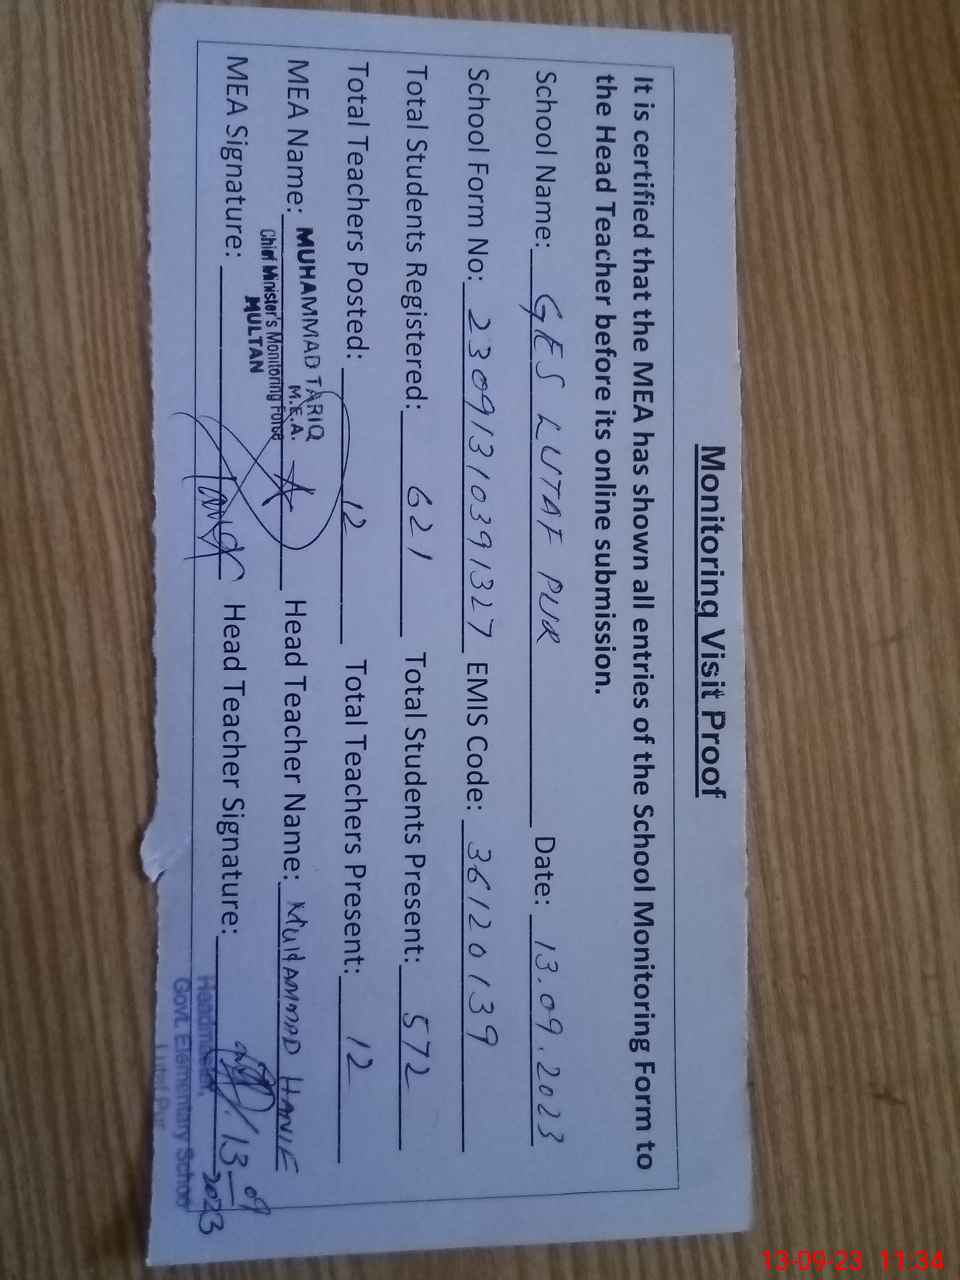 Monitoring Visit Proof
It is certified that the MEA has shown all entries of the School Monitoring Form to
the Head Teacher before its online submission.
School Name: GES LUTAF PUR Date: 13.09.2023
School Form No: 23091310391327 EMIS Code: 36120139
Total Students Registered: 621 Total Students Present: 572
Total Teachers Posted: 12 Total Teachers Present: 12
MEA Name: MUHAMMAD TARIQ Head Teacher Name: MUHAMMAD HANIF
M.E.A.
Chief Minister's Monitoring Force
MULTAN
MEA Signature: Head Teacher Signature: 13 09
2023
Headmaster,
Govt. Elementary School
Lutaf Pur
13-09-23 11:34